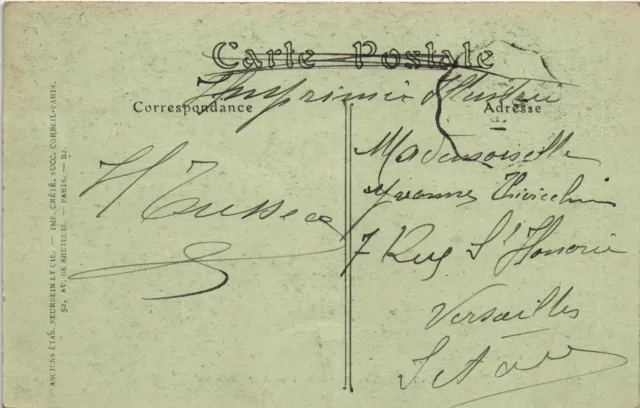 Carte Postale
Imprimé illustré
Correspondance
Adresse
Mademoiselle
Yvonne
7 Rue St Honoré
Versailles
S et Oise
ANCIENS ÉTAB. NEURDEIN ET CIE. — IMP. CRÉTÉ, SUCC. CORBEIL-PARIS.
52, AV. DE BRETEUIL. — PARIS. — B2.